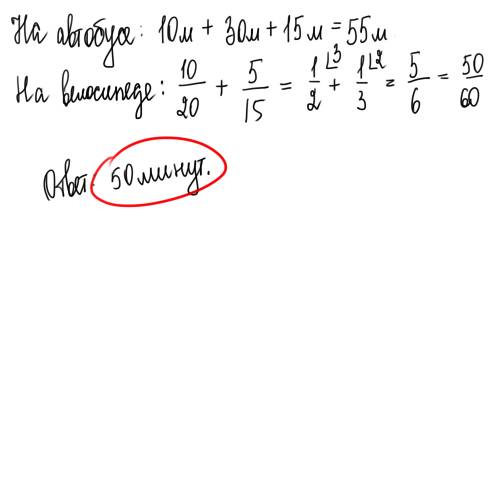 На автобусе: 10м + 30м + 15м = 55м
На велосипеде: 10/20 + 5/15 = 1/2 ⌊3 + 1/3 ⌊2 = 5/6 = 50/60
Ответ: 50 минут.